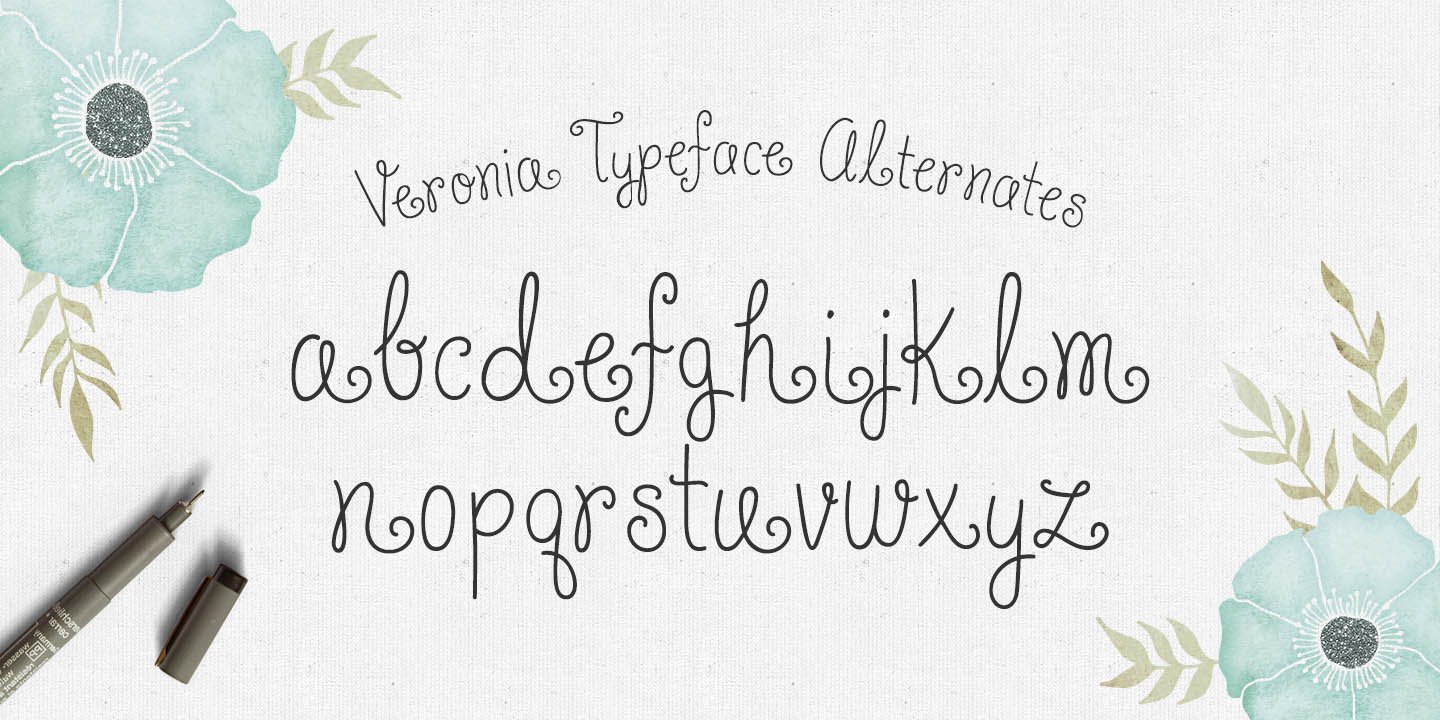 Veronia Typeface Alternates
abcdefghijklm
nopqrstuvwxyz